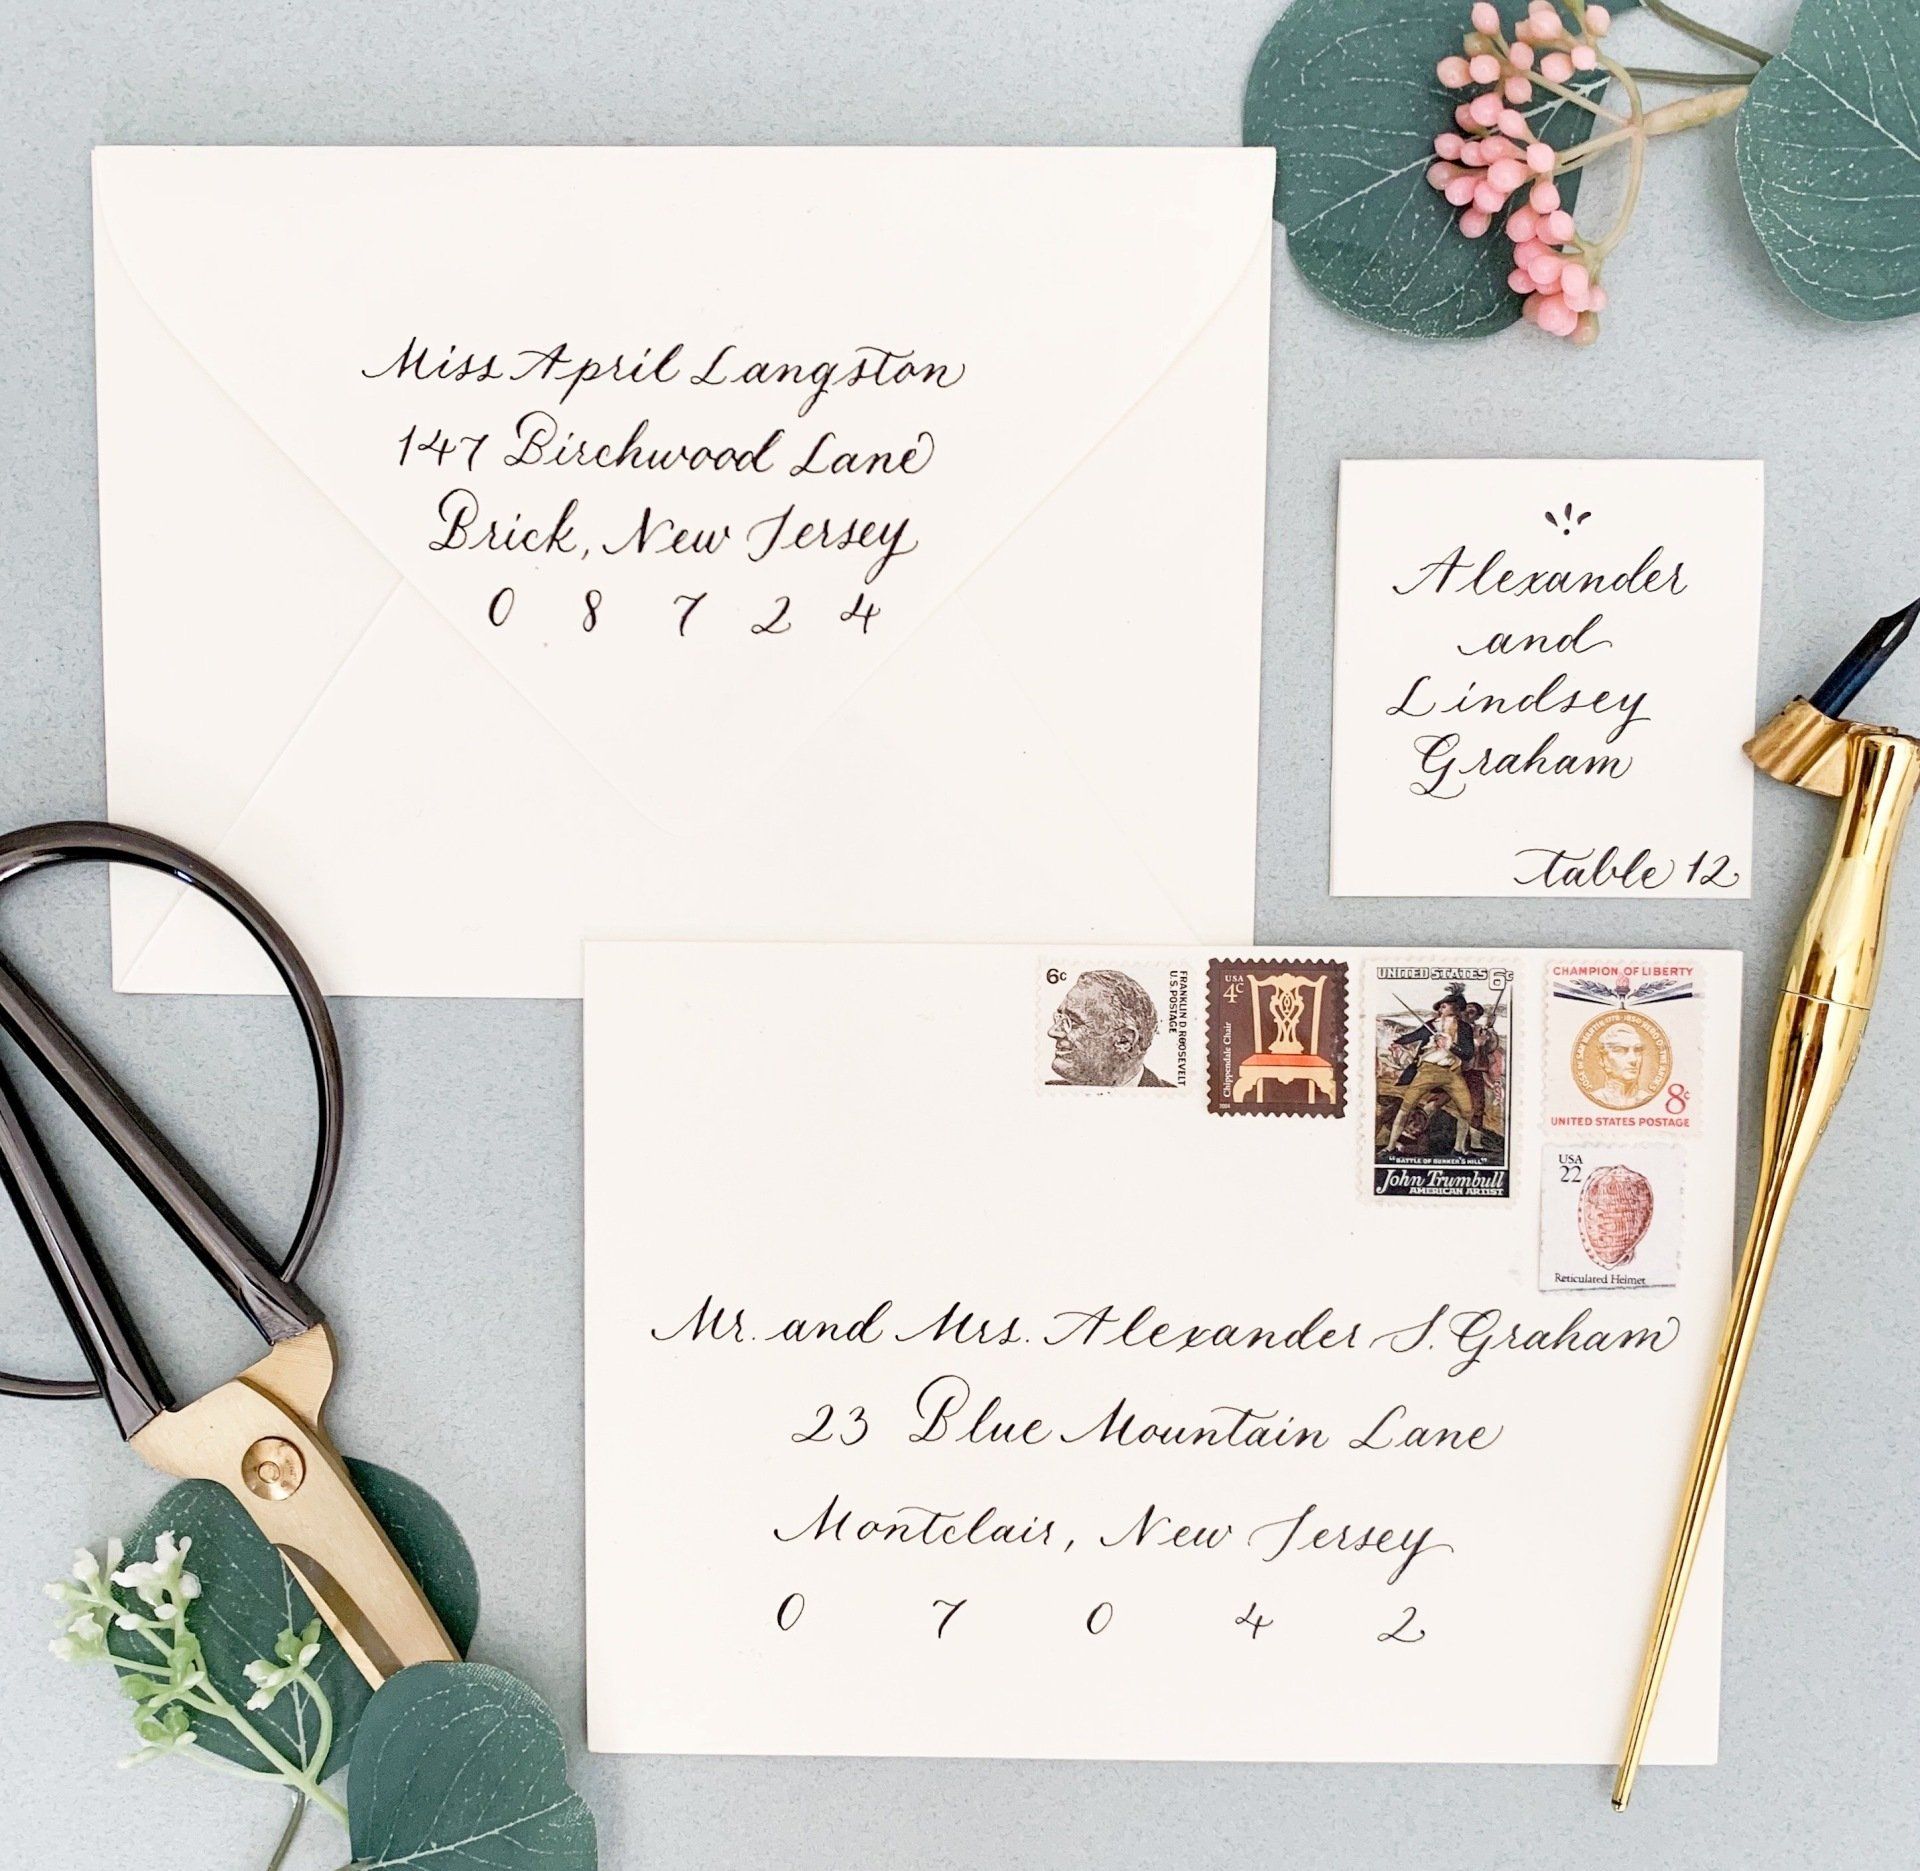 Miss April Langston
147 Birchwood Lane
Brick, New Jersey
0 8 7 2 4
Alexander
and
Lindsey
Graham
table 12
6c
FRANKLIN D. ROOSEVELT
U.S. POSTAGE
USA
4c
Chippendale Chair
2004
UNITED STATES 6c
"BATTLE OF BUNKER'S HILL"
John Trumbull
AMERICAN ARTIST
CHAMPION OF LIBERTY
8c
UNITED STATES POSTAGE
USA
22
Reticulated Helmet
Mr. and Mrs. Alexander S. Graham
23 Blue Mountain Lane
Montclair, New Jersey
0 7 0 4 2